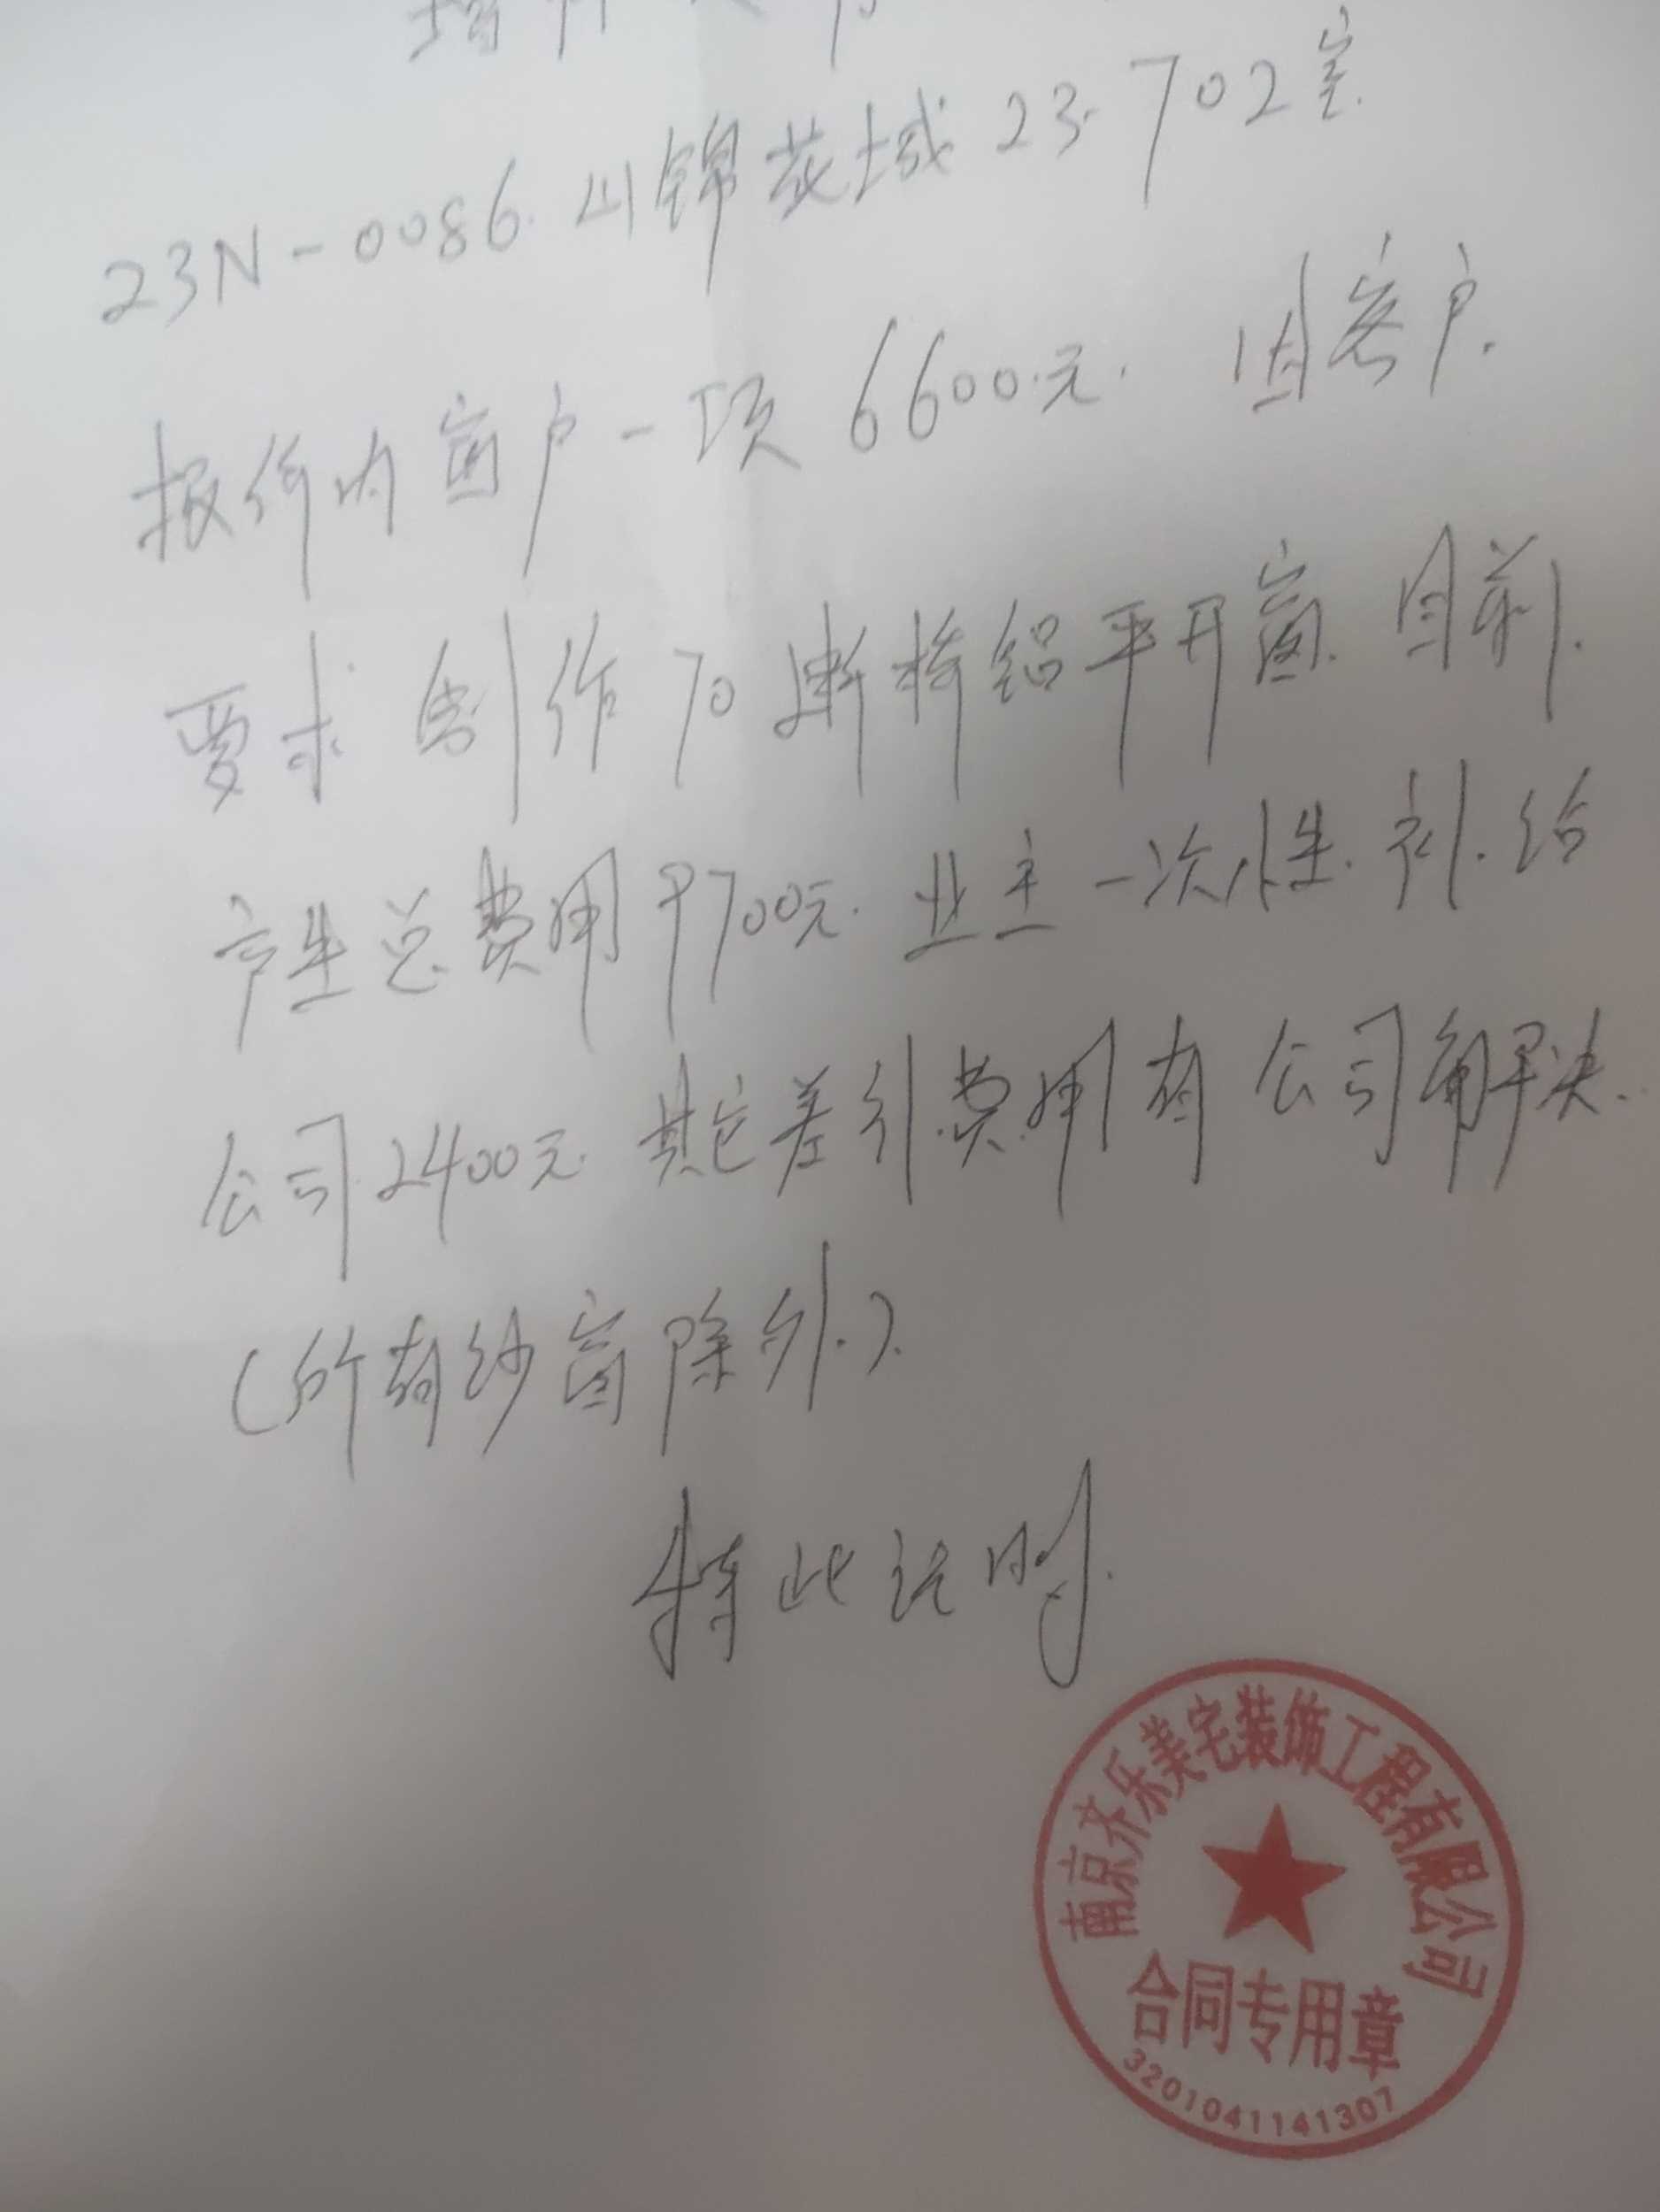 23N-0086.山锦花城23-702室
报价内窗户一项6600元.因客户.
要求制作70断桥铝平开窗.目前.
产生总费用9700元.业主一次性.补.给
公司2400元.其它差引.费用有公司解决.
(所有纱窗除外.).
特此证明.
南京齐乐美宅装饰工程有限公司
合同专用章
3201041141307